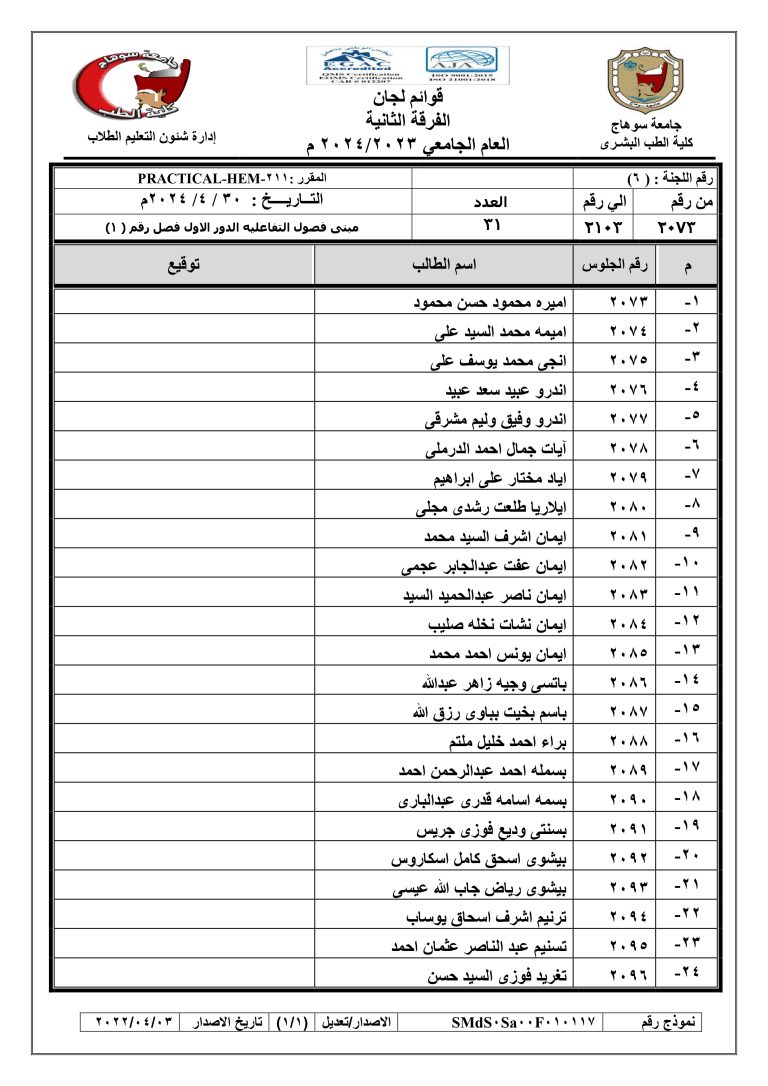 جامعة سوهاج
كلية الطب
إدارة شئون التعليم الطلاب
EGAC
Accredited
QMS Certification
EOHMS Certification
CAB # 012207
AJA
ISO 9001:2015
ISO 21001:2018
قوائم لجان
الفرقة الثانية
العام الجامعي ٢٠٢٤/٢٠٢٣ م
جامعة سوهاج
كلية الطب البشرى
رقم اللجنة : (٦) المقرر :PRACTICAL-HEM-٢١١
من رقم الي رقم العدد التــاريــــخ : ٣٠ / ٤/ ٢٠٢٤م
٢٠٧٣ ٢١٠٣ ٣١ مبنى فصول التفاعليه الدور الاول فصل رقم (١)
م رقم الجلوس اسم الطالب توقيع
١- ٢٠٧٣ اميره محمود حسن محمود
٢- ٢٠٧٤ اميمه محمد السيد على
٣- ٢٠٧٥ انجى محمد يوسف على
٤- ٢٠٧٦ اندرو عبيد سعد عبيد
٥- ٢٠٧٧ اندرو وفيق وليم مشرقى
٦- ٢٠٧٨ آيات جمال احمد الدرملى
٧- ٢٠٧٩ اياد مختار على ابراهيم
٨- ٢٠٨٠ ايلاريا طلعت رشدى مجلى
٩- ٢٠٨١ ايمان اشرف السيد محمد
١٠- ٢٠٨٢ ايمان عفت عبدالجابر عجمى
١١- ٢٠٨٣ ايمان ناصر عبدالحميد السيد
١٢- ٢٠٨٤ ايمان نشات نخله صليب
١٣- ٢٠٨٥ ايمان يونس احمد محمد
١٤- ٢٠٨٦ باتسى وجيه زاهر عبدالله
١٥- ٢٠٨٧ باسم بخيت بباوى رزق الله
١٦- ٢٠٨٨ براء احمد خليل ملتم
١٧- ٢٠٨٩ بسمله احمد عبدالرحمن احمد
١٨- ٢٠٩٠ بسمه اسامه قدرى عبدالبارى
١٩- ٢٠٩١ بسنتى وديع فوزى جريس
٢٠- ٢٠٩٢ بيشوى اسحق كامل اسكاروس
٢١- ٢٠٩٣ بيشوى رياض جاب الله عيسى
٢٢- ٢٠٩٤ ترنيم اشرف اسحاق يوساب
٢٣- ٢٠٩٥ تسنيم عبد الناصر عثمان احمد
٢٤- ٢٠٩٦ تغريد فوزى السيد حسن
نموذج رقم SMdS٠Sa٠٠F٠١٠١١٧ الاصدار/تعديل (١/١) تاريخ الاصدار ٢٠٢٢/٠٤/٠٣